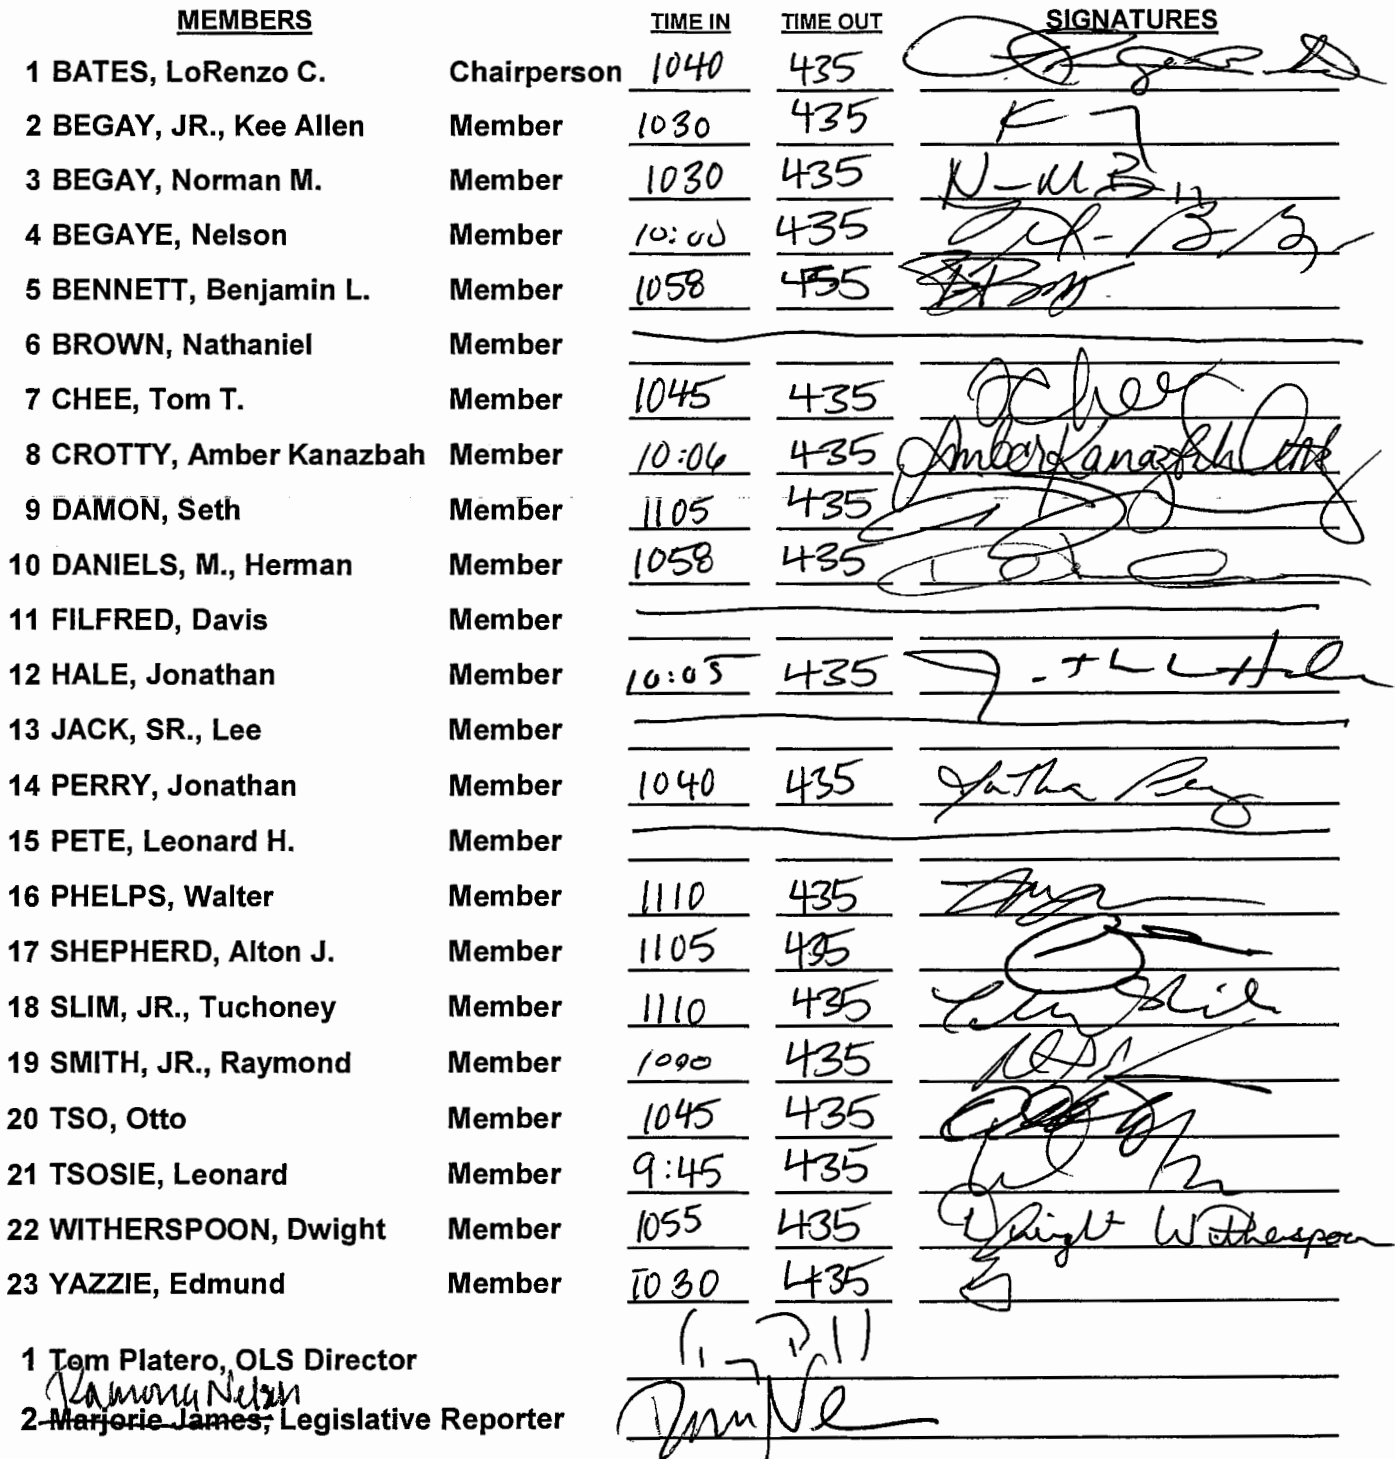 MEMBERS TIME IN TIME OUT SIGNATURES
1 BATES, LoRenzo C. Chairperson 1040 435
2 BEGAY, JR., Kee Allen Member 1030 435
3 BEGAY, Norman M. Member 1030 435 N-M B
4 BEGAYE, Nelson Member 10:00 435
5 BENNETT, Benjamin L. Member 1058 455
6 BROWN, Nathaniel Member
7 CHEE, Tom T. Member 1045 435 Chee
8 CROTTY, Amber Kanazbah Member 10:06 435 Amber Kanazbah Crotty
9 DAMON, Seth Member 1105 435
10 DANIELS, M., Herman Member 1058 435
11 FILFRED, Davis Member
12 HALE, Jonathan Member 10:05 435 Hale
13 JACK, SR., Lee Member
14 PERRY, Jonathan Member 1040 435
15 PETE, Leonard H. Member
16 PHELPS, Walter Member 1110 435
17 SHEPHERD, Alton J. Member 1105 435
18 SLIM, JR., Tuchoney Member 1110 435
19 SMITH, JR., Raymond Member 1000 435
20 TSO, Otto Member 1045 435
21 TSOSIE, Leonard Member 9:45 435
22 WITHERSPOON, Dwight Member 1055 435 Dwight Witherspoon
23 YAZZIE, Edmund Member 1030 435
1 Tom Platero, OLS Director
Ramona Nelson
2 Marjorie James, Legislative Reporter